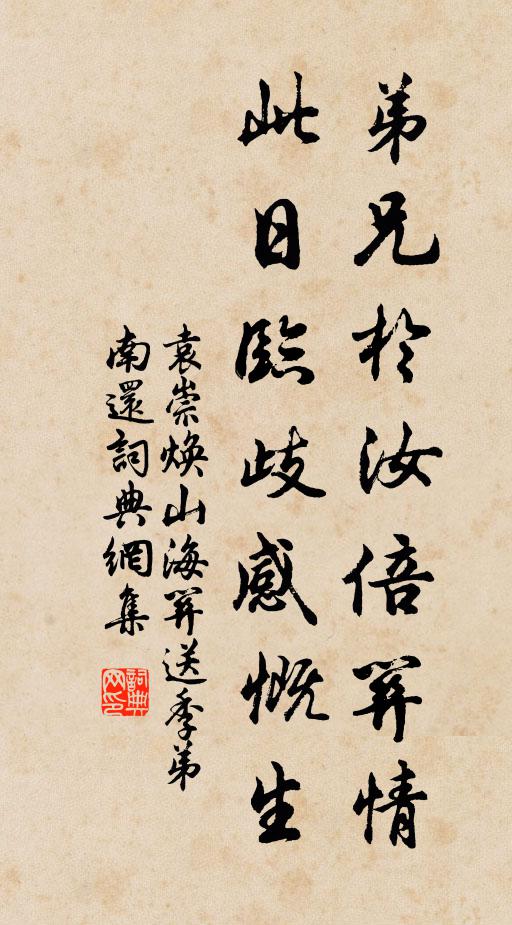 弟兄於汝倍關情
此日臨歧感慨生
袁崇煥山海關送季弟
南還詞典網集
詞典網印